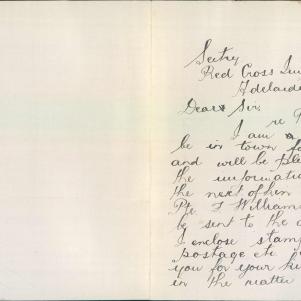 Secty
Red Cross
Adelaide
Dear Sir.
I am
be in town
and will be
the information
the next of kin
Pte. J William
be sent to the
I enclose stamp
postage etc
you for your
in the matter